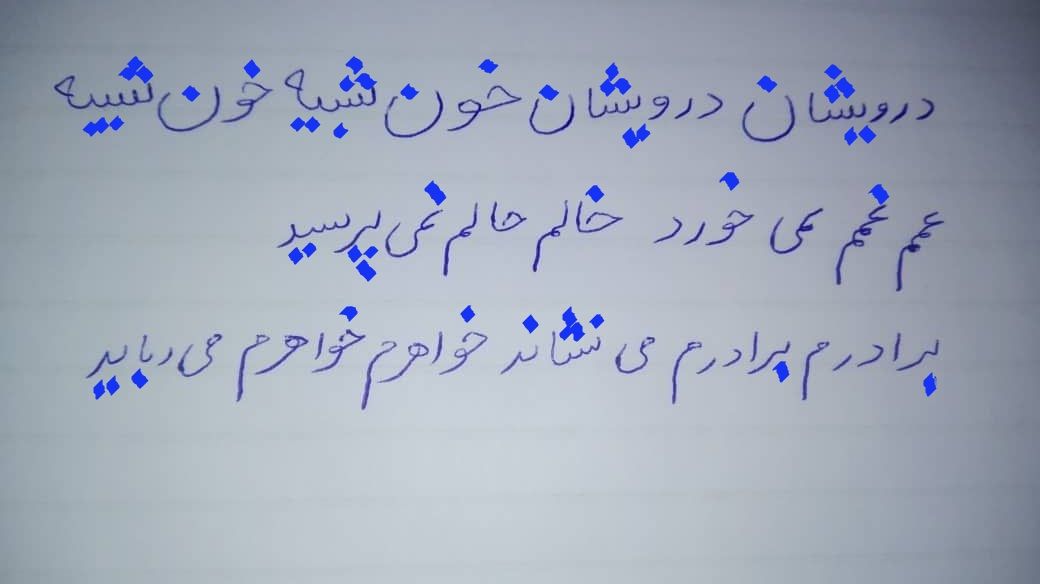 درویشان درویشان خون شبیه خون شبیه
عمم غمم نمی خورد خالم حالم نمی پرسید
برادرم برادرم می نشاند خواهرم خواهرم می رباید